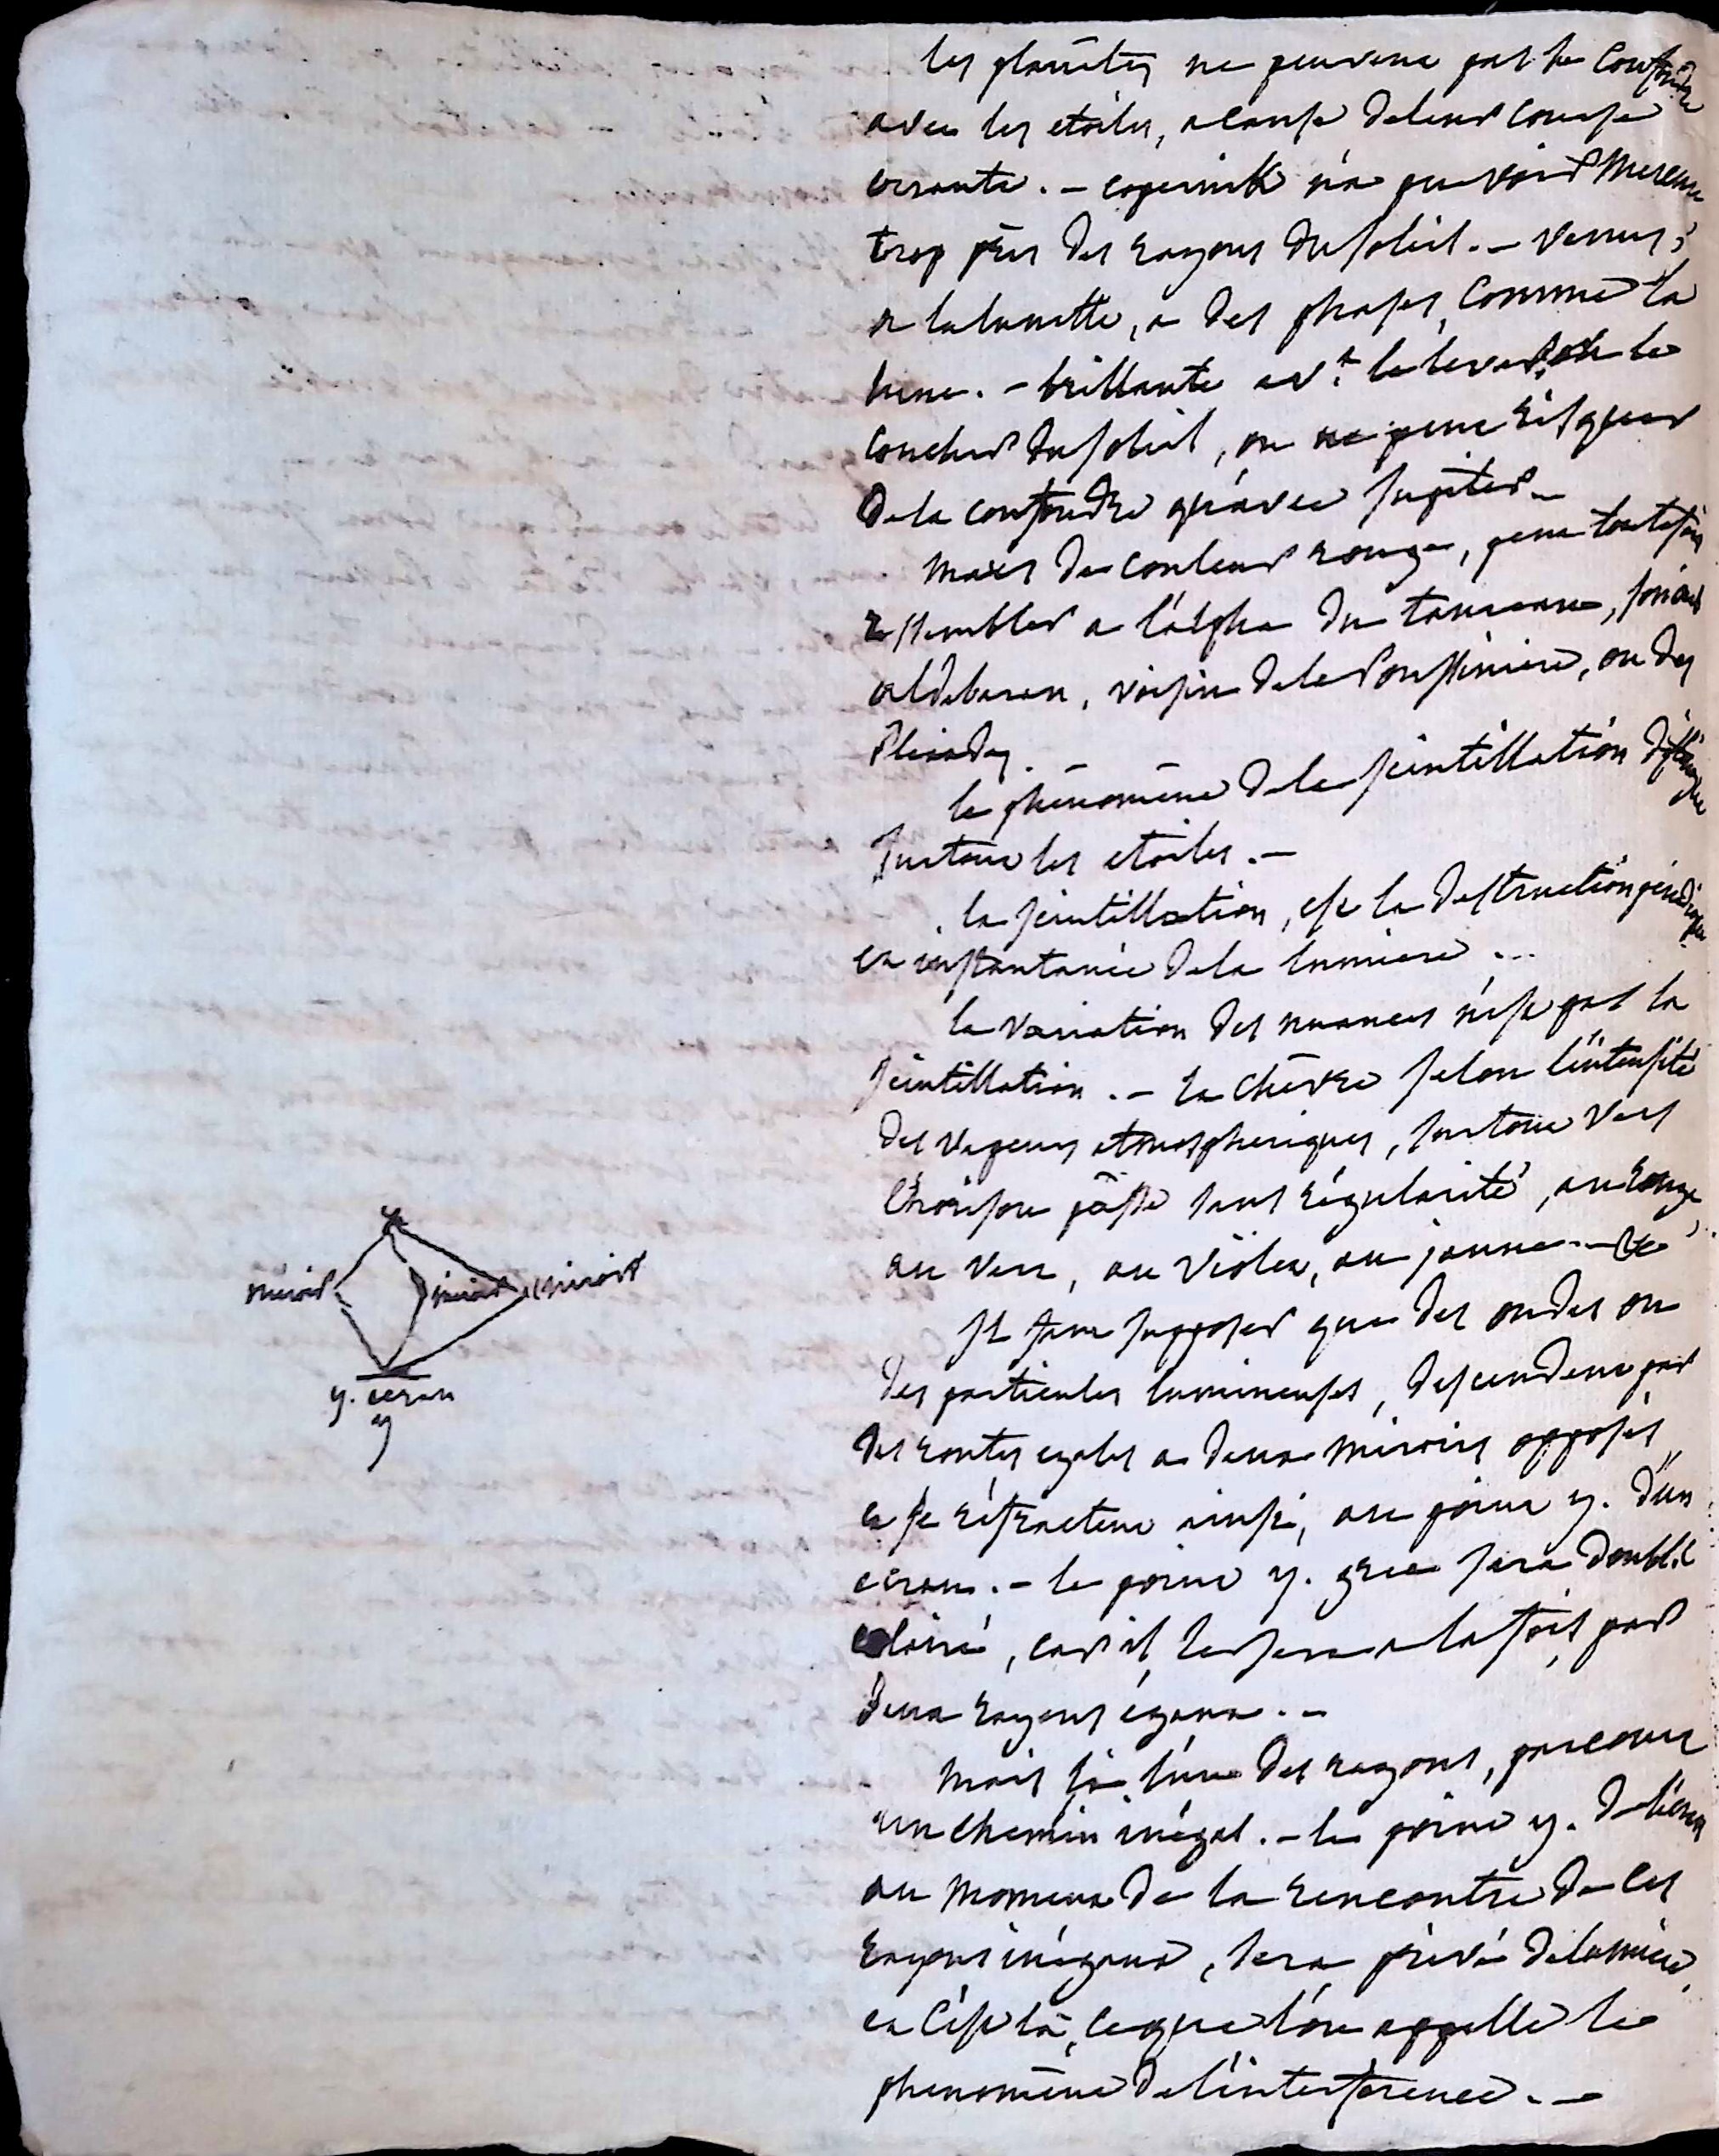 les planêtes ne peuvent pas se confondre
avec les etoiles, a cause de leur course
errante. - copernik n'a pu voir Mercure
trop près des rayons du soleil. - venus,
a la lunette, a des phases, comme la
lune. - brillante avt. le lever, ou le
coucher du soleil, on ne peut risquer
de la confondre qu'avec jupiter -
mars de couleur rouge, peut toutefois
ressembler a l'alpha du taureau,
aldebaran, voisin de la Poussiniere, ou des
Pleiades. -
le phénomène de la scintillation distingue
surtout les etoiles. -
la scintillation, est la destruction périodique
et instantanée de la lumiere ...
la variation des nuances n'est pas la
scintillation. - la Chèvre selon l'intensité
des vapeurs atmospheriques, surtout vers
l'horison passe sans régularité, au rouge,
au vert, au violet, au jaune - &c
il faut supposer que des ondes ou
des particules lumineuses, descendent par
des routes egales a deux miroirs opposés
et se réfractent ainsi, au point y. d'un
écran. - le point y. grec sera doublt
eclairé, car il le sera a la fois par
deux rayons égaux. -
mais si l'un des rayons, parcourt
un chemin inégal. - le point y. de l'écran
au moment de la rencontre de ces
rayons inégaux, sera privé de lumière,
et c'est là, ce que l'on appelle le
phenomène de l'interférence. -
miroir miroir miroir
y. ecran
y